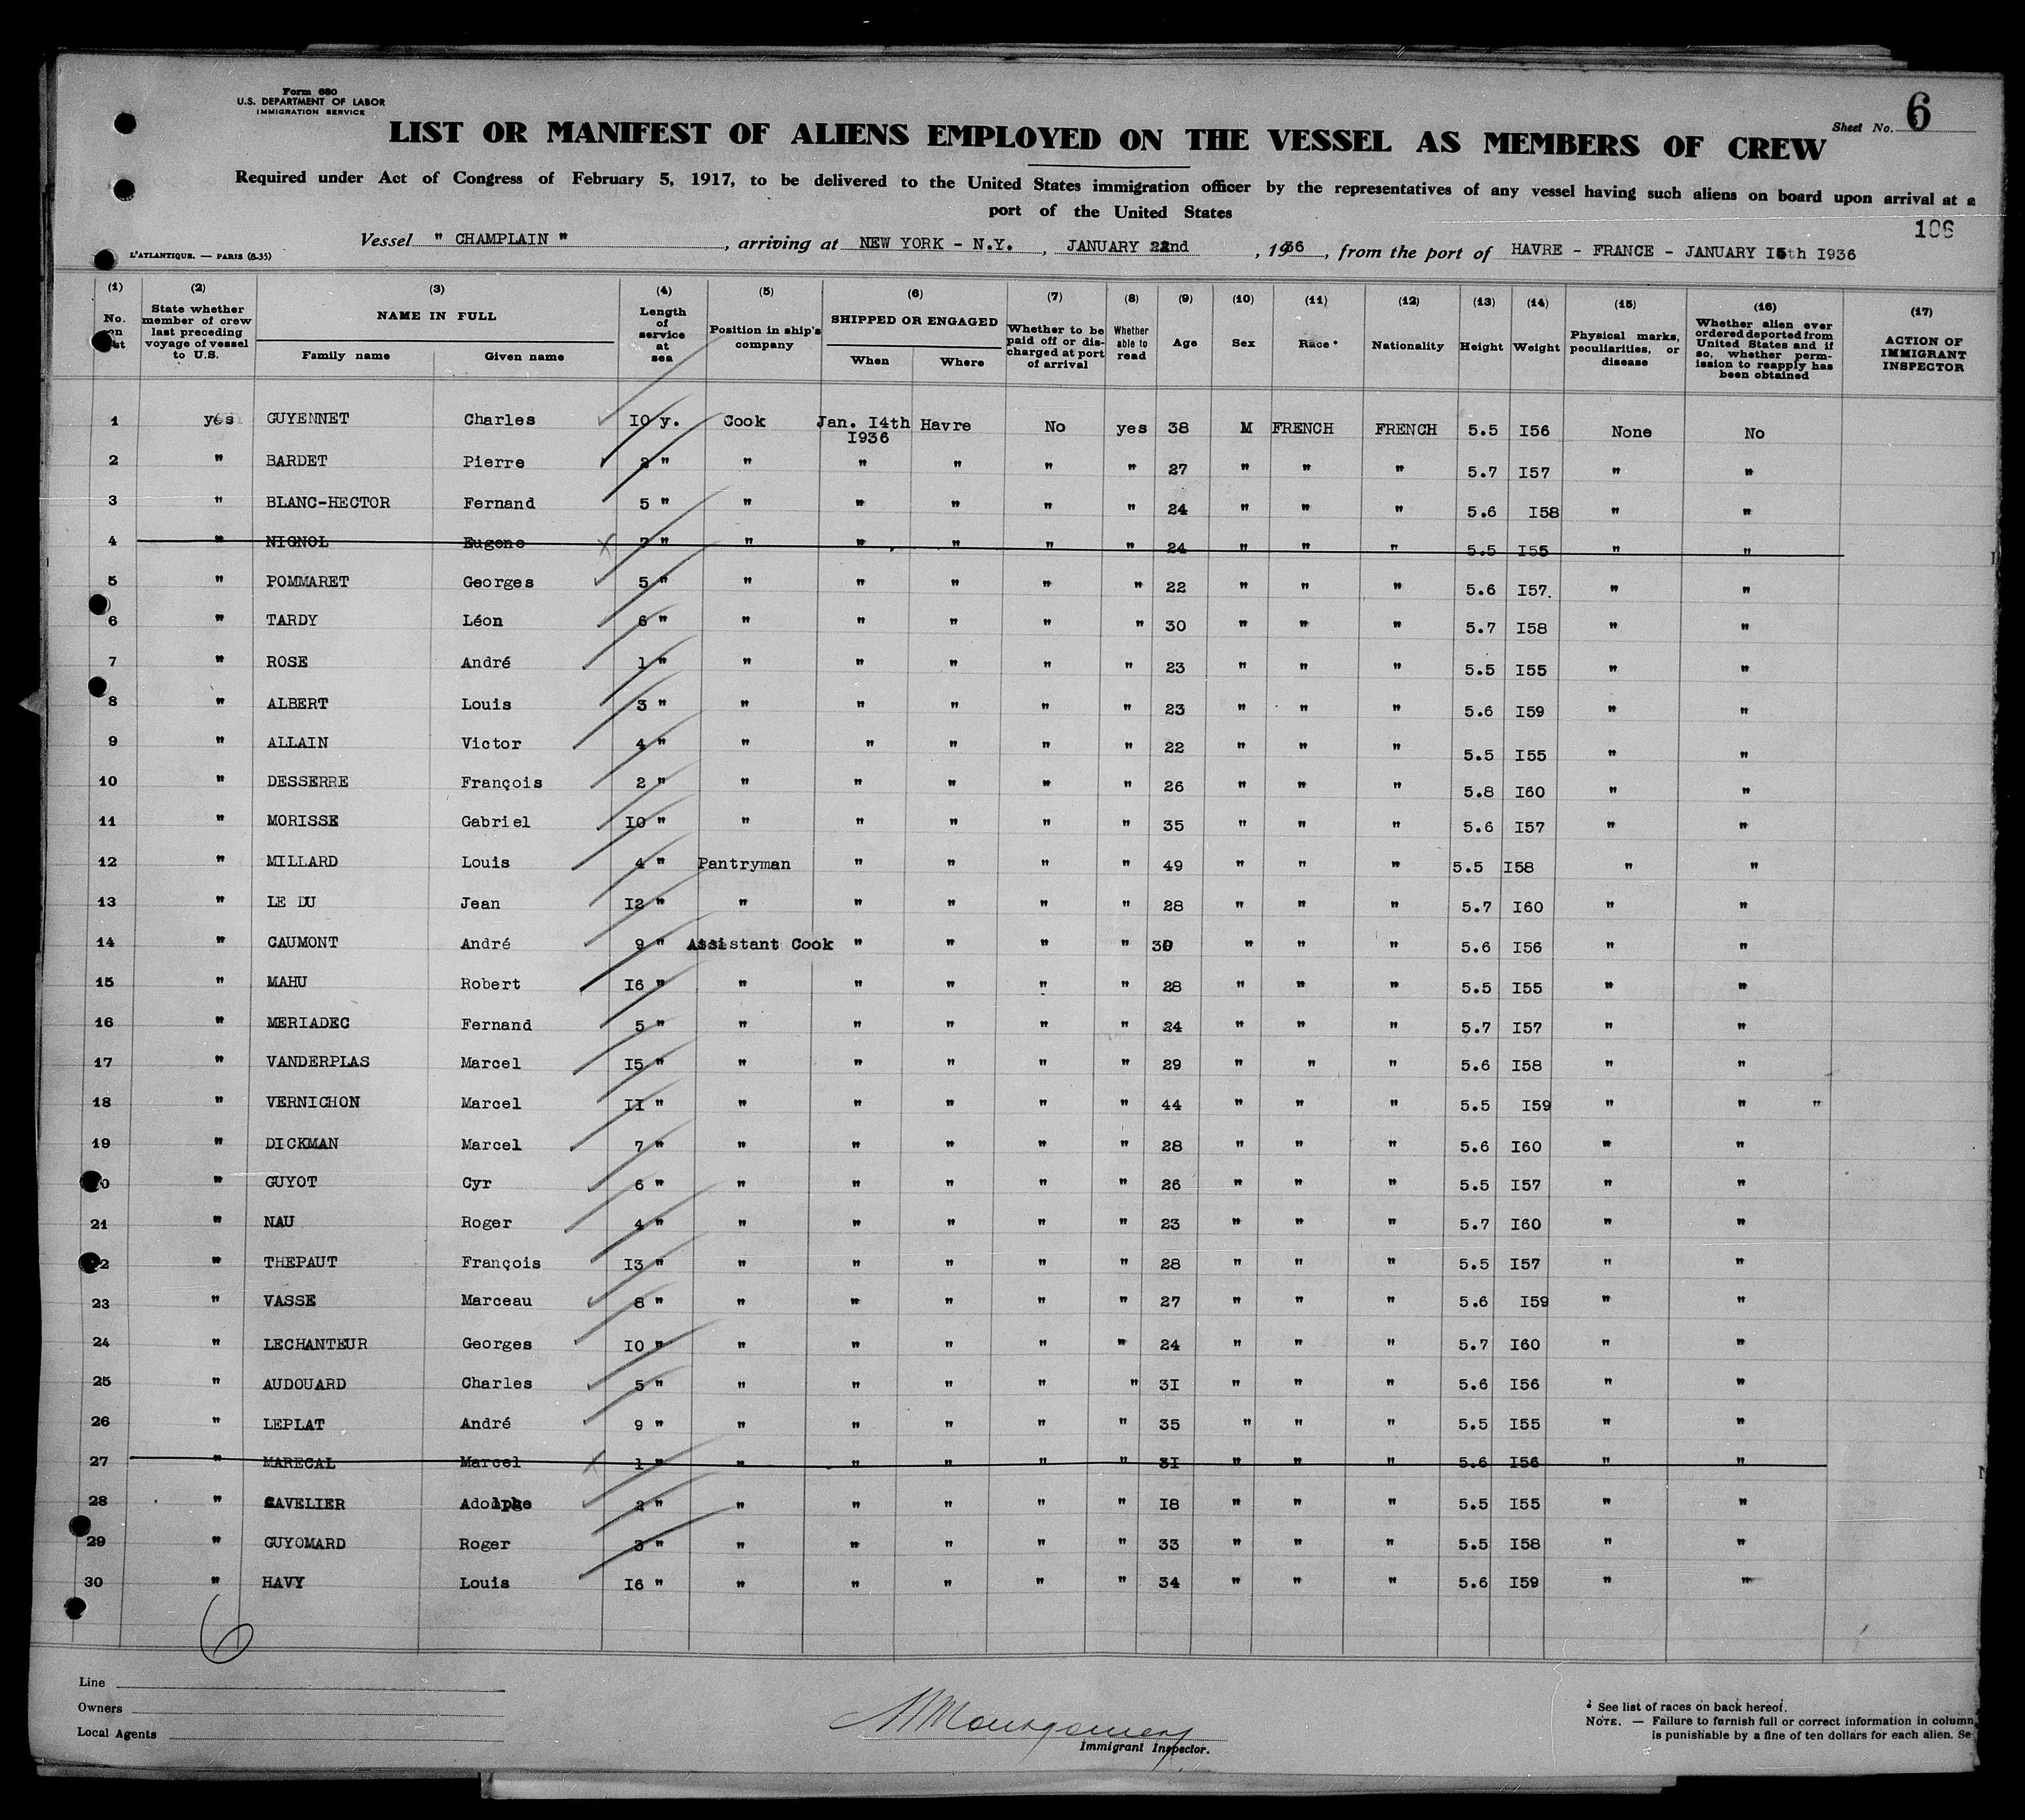 Form 680
U.S. DEPARTMENT OF LABOR
IMMIGRATION SERVICE
Sheet No. 6
LIST OR MANIFEST OF ALIENS EMPLOYED ON THE VESSEL AS MEMBERS OF CREW
Required under Act of Congress of February 5, 1917, to be delivered to the United States immigration officer by the representatives of any vessel having such aliens on board upon arrival at a
port of the United States
106
Vessel " CHAMPLAIN " , arriving at NEW YORK - N.Y. , JANUARY 22nd , 1936 , from the port of HAVRE - FRANCE - JANUARY I5th I936
L'ATLANTIQUE. — PARIS (8-35)
(1) (2) (3) (4) (5) (6) (7) (8) (9) (10) (11) (12) (13) (14) (15) (16) (17)
No. on list
State whether member of crew last preceding voyage of vessel to U.S.
NAME IN FULL
Family name Given name
Length of service at sea
Position in ship's company
SHIPPED OR ENGAGED
When Where
Whether to be paid off or discharged at port of arrival
Whether able to read
Age
Sex
Race *
Nationality
Height
Weight
Physical marks, peculiarities, or disease
Whether alien ever ordered deported from United States and if so, whether permission to reapply has been obtained
ACTION OF IMMIGRANT INSPECTOR
1 yes GUYENNET Charles I0 y. Cook Jan. I4th I936 Havre No yes 38 M FRENCH FRENCH 5.5 I56 None No
2 " BARDET Pierre 2 " " " " " " 27 " " " 5.7 I57 " "
3 " BLANC-HECTOR Fernand 5 " " " " " " 24 " " " 5.6 I58 " "
4 " NIGNOL Eugene 7 " " " " " " 24 " " " 5.5 I55 " "
5 " POMMARET Georges 5 " " " " " " 22 " " " 5.6 I57. " "
6 " TARDY Léon 6 " " " " " " 30 " " " 5.7 I58 " "
7 " ROSE André 1 " " " " " " 23 " " " 5.5 I55 " "
8 " ALBERT Louis 3 " " " " " " 23 " " " 5.6 I59 " "
9 " ALLAIN Victor 4 " " " " " " 22 " " " 5.5 I55 " "
10 " DESSERRE François 2 " " " " " " 26 " " " 5.8 I60 " "
11 " MORISSE Gabriel I0 " " " " " " 35 " " " 5.6 I57 " "
12 " MILLARD Louis 4 " Pantryman " " " " 49 " " " 5.5 I58 " "
13 " LE DU Jean I2 " " " " " " 28 " " " 5.7 I60 " "
14 " CAUMONT André 9 " Assistant Cook " " " " 30 " " " 5.6 I56 " "
15 " MAHU Robert I6 " " " " " " 28 " " " 5.5 I55 " "
16 " MERIADEC Fernand 5 " " " " " " 24 " " " 5.7 I57 " "
17 " VANDERPLAS Marcel I5 " " " " " " 29 " " " 5.6 I58 " "
18 " VERNICHON Marcel II " " " " " " 44 " " " 5.5 I59 " " "
19 " DICKMAN Marcel 7 " " " " " " 28 " " " 5.6 I60 " "
20 " GUYOT Cyr 6 " " " " " " 26 " " " 5.5 I57 " "
21 " NAU Roger 4 " " " " " " 23 " " " 5.7 I60 " "
22 " THEPAUT François I3 " " " " " " 28 " " " 5.5 I57 " "
23 " VASSE Marceau 8 " " " " " " 27 " " " 5.6 I59 " "
24 " LECHANTEUR Georges I0 " " " " " " 24 " " " 5.7 I60 " "
25 " AUDOUARD Charles 5 " " " " " " 3I " " " 5.6 I56 " "
26 " LEPLAT André 9 " " " " " " 35 " " " 5.5 I55 " "
27 " MARECAL Marcel 1 " " " " " " 3I " " " 5.6 I56 " "
28 " CAVELIER Adolphe 2 " " " " " " I8 " " " 5.5 I55 " "
29 " GUYOMARD Roger 3 " " " " " " 33 " " " 5.5 I58 " "
30 " HAVY Louis I6 " " " " " " 34 " " " 5.6 I59 " "
6
Line
Owners
Local Agents
Montgomery
Immigrant Inspector.
* See list of races on back hereof.
NOTE. — Failure to furnish full or correct information in column
is punishable by a fine of ten dollars for each alien. Se